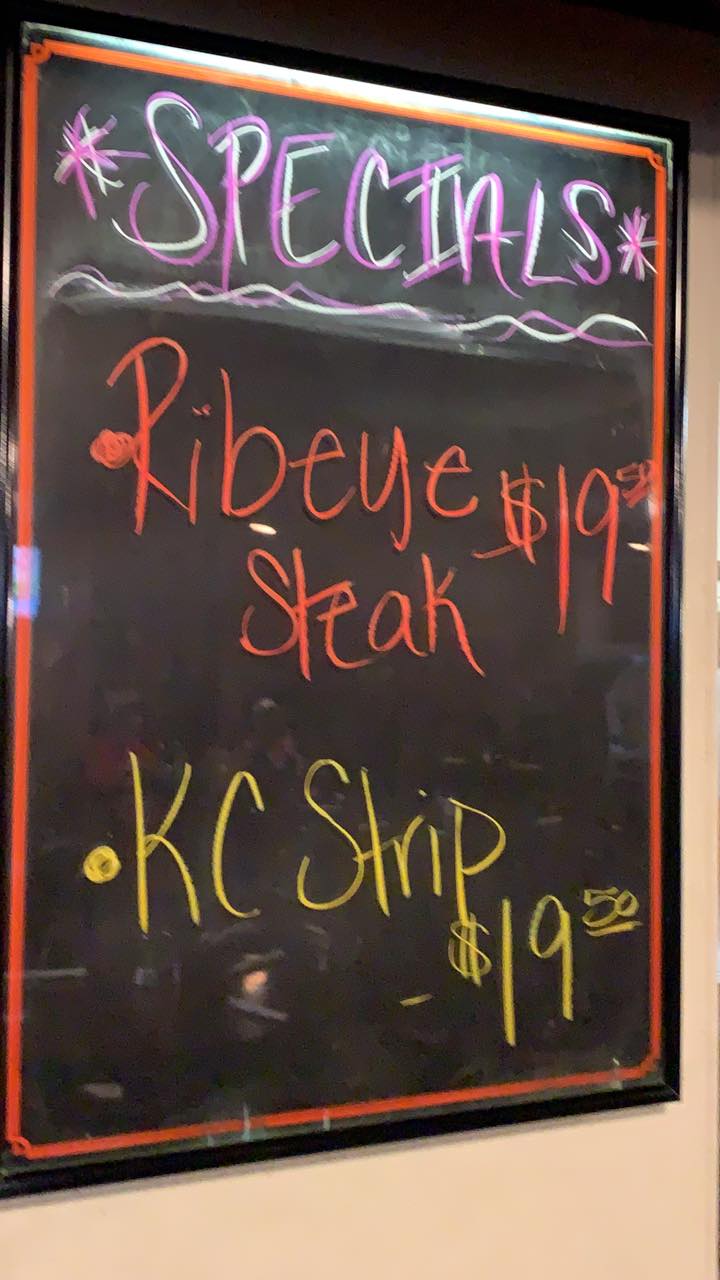 *SPECIALS*
•Ribeye $19 50
Steak
•KC Strip
$19 50